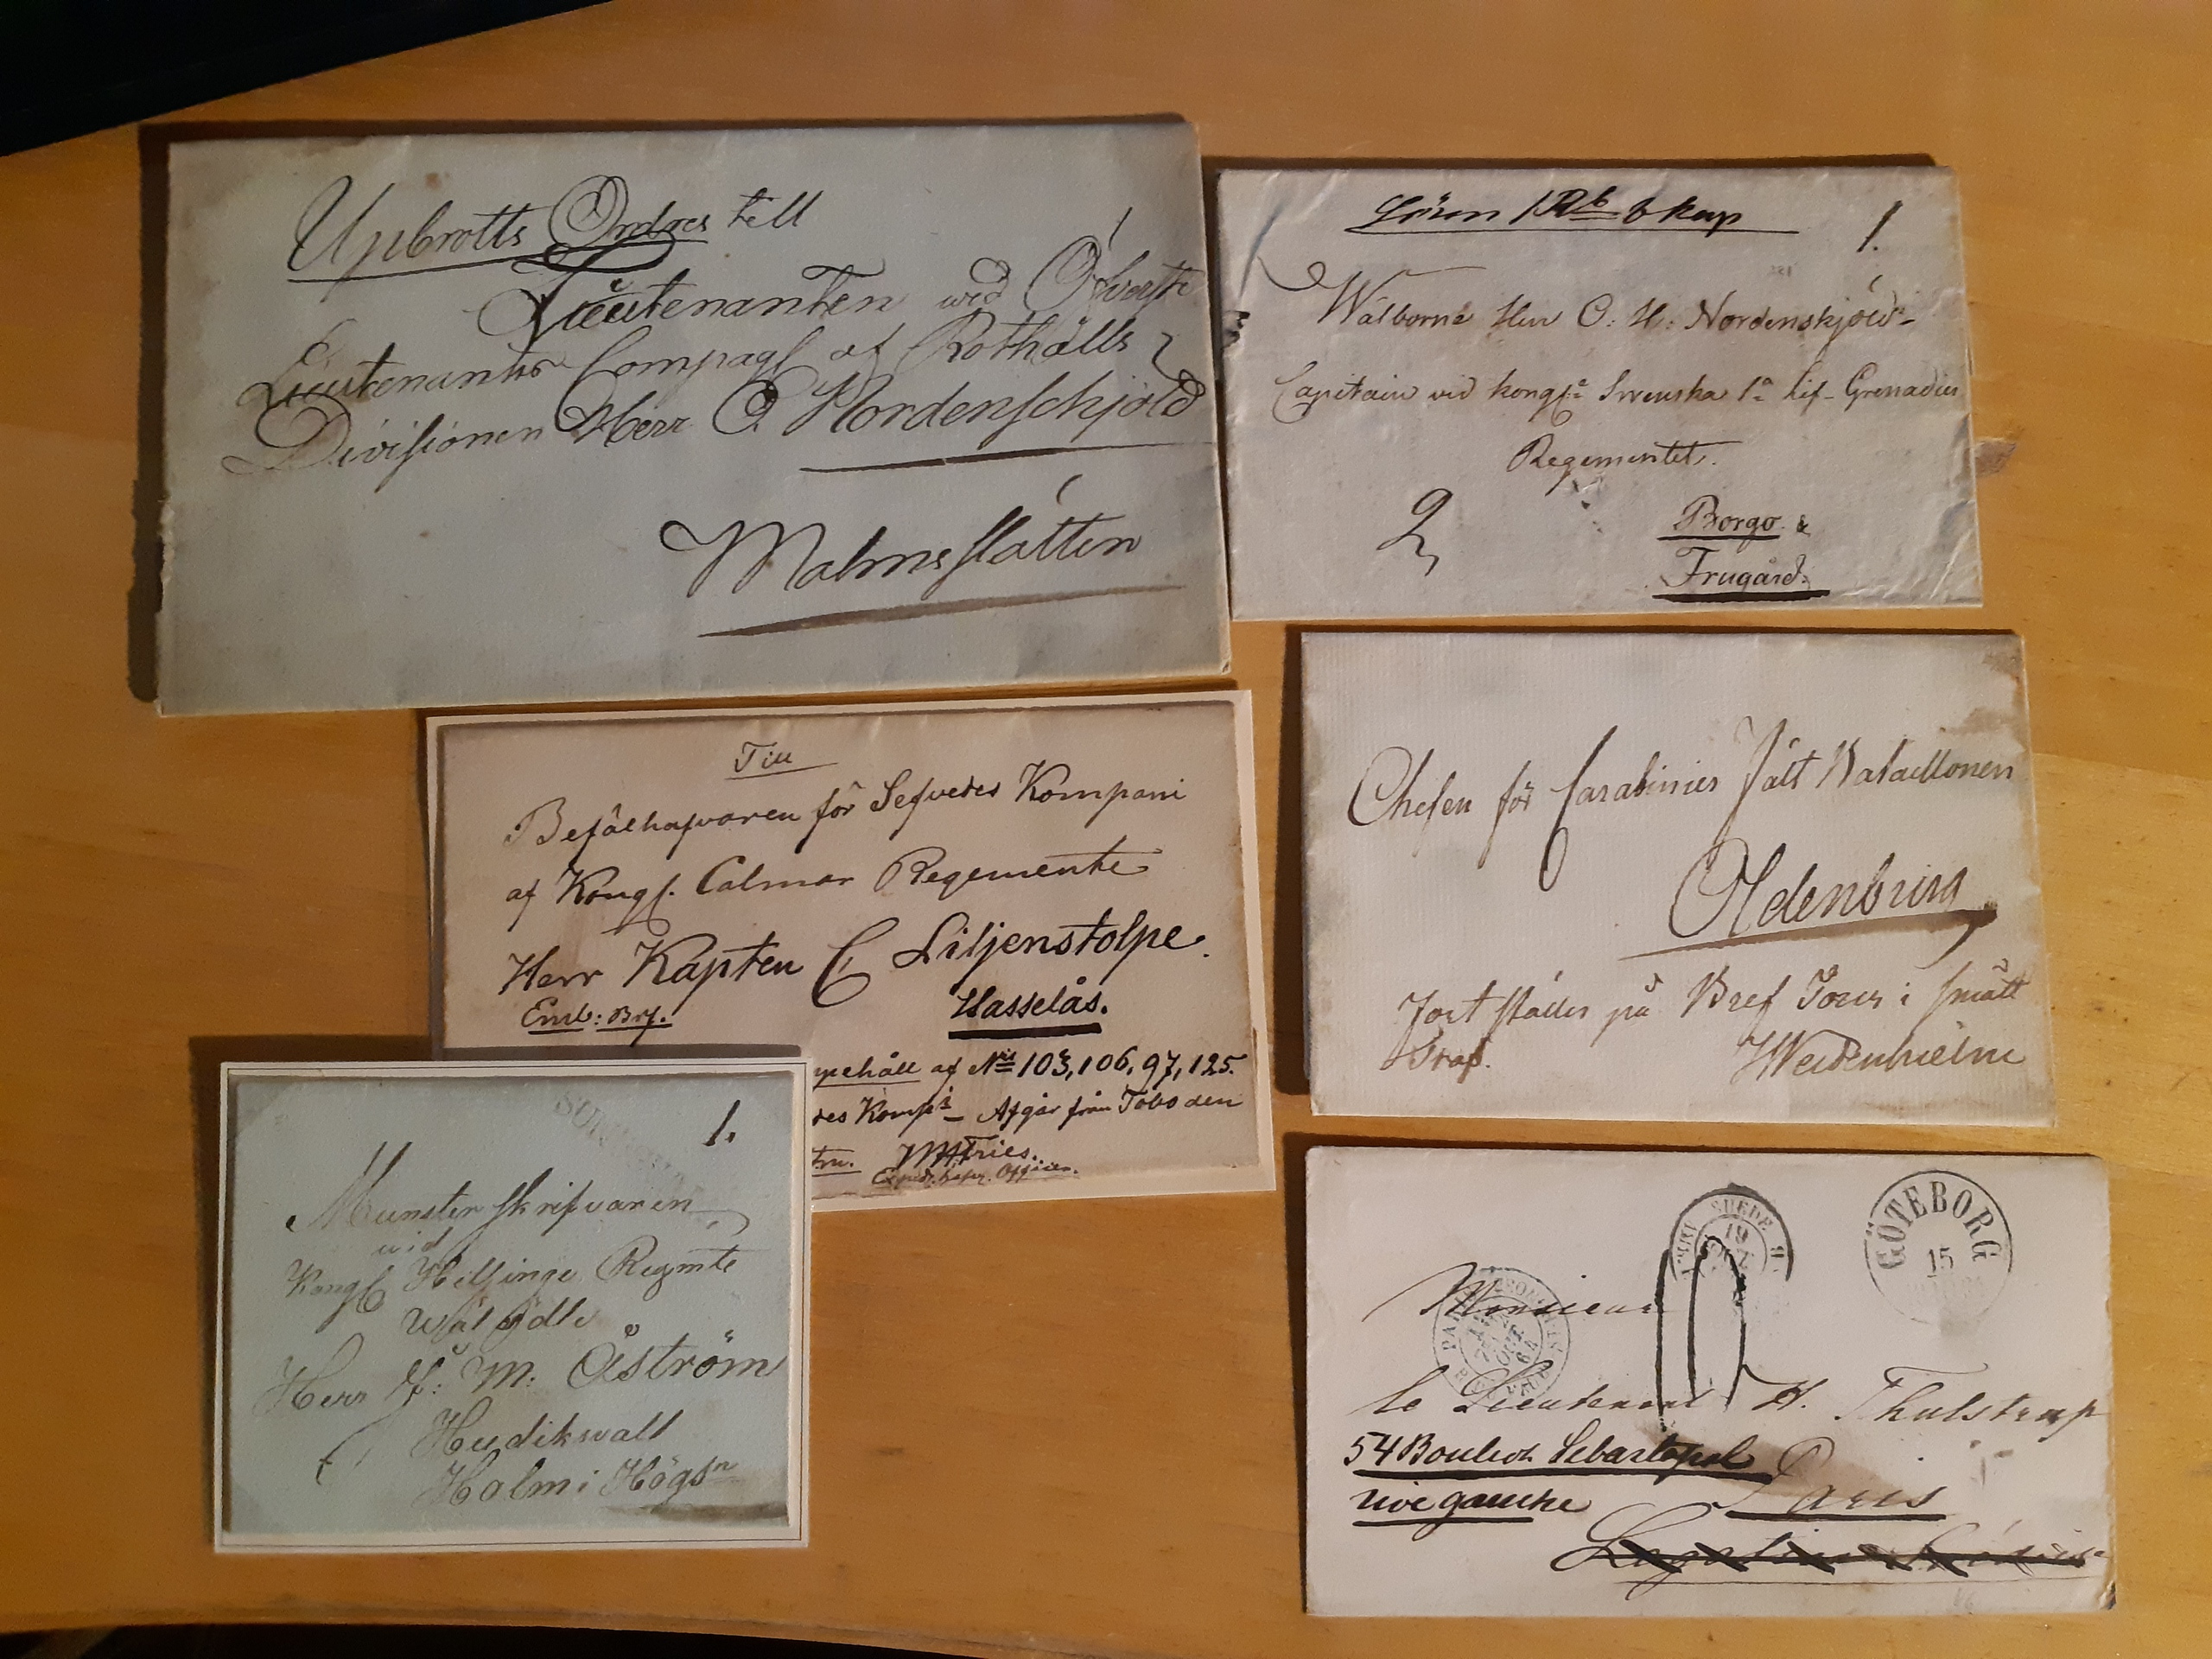 Upbrotts Ordres till
Lieutenanten wid Öfverste
Lieutenants Compagᶩ af Rothålls
Divisionen Herr O Nordenschjöld
Malmslätten
Lösen 1 Rb 6 kop
1.
Wälborne Herr O: H: Nordenskjöld
Capitain vid kongl. Swenska 1ª Lif-Grenadier
Regementet.
2
Borgo &
Frugård.
Till
Befälhafvaren för Sefvedes Kompani
af Kongl. Calmar Regemente
Herr Kapten C Liljenstolpe.
Hasselås.
Enl: Brf.
af No 103, 106, 97, 125.
Komp. - Afgår från Tobo den
Fries.
Chefen för Carabinier Fält Bataillonen
Oldenburg
Fort ställes på Bref i smått
Weidenhielm
1.
Munster skrifvaren
wid
Kongl Helsinge Regmte
Wäl Ädle
Herr M: Åström
Hudikwall
Holm i Högsn
GÖTEBORG
15
SUEDE
19
Monsieur
le Lieutenant H. Thulstrup
54 Boulevd. Sebastopol
rive gauche
Paris
Legation Suédoise